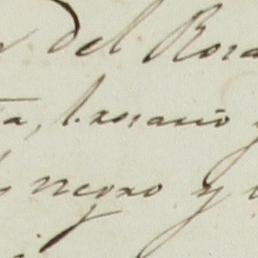 del Rosa
ta, l. rosario y
negro y